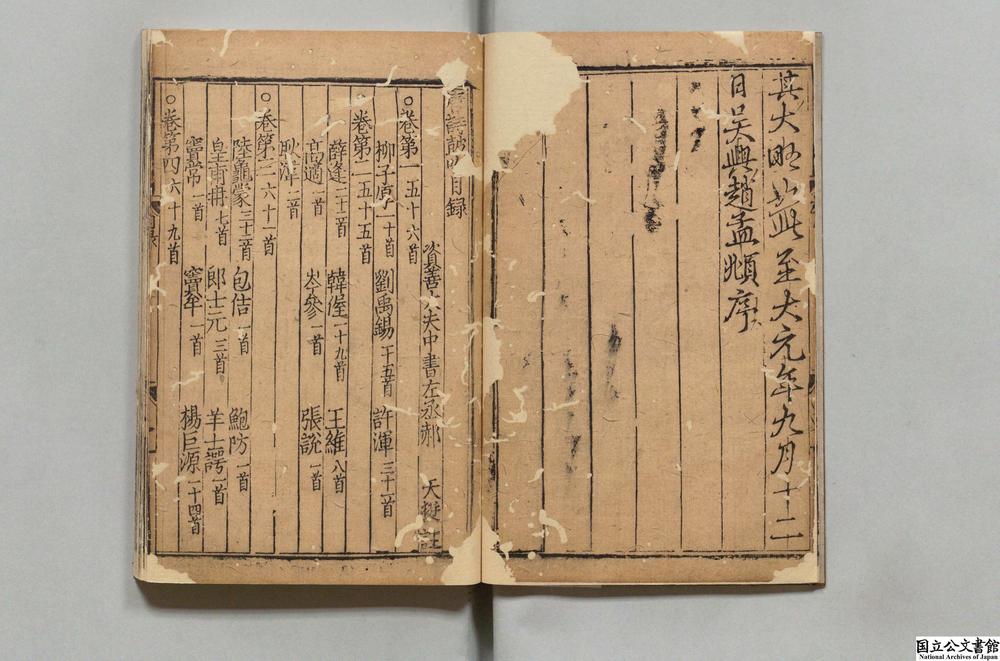 其大略如此至大元年九月十二
日吳興趙孟頫序
唐詩鼓吹目錄
資善大夫中書左丞郝 天挺 註
○卷第一 五十六首
柳子厚 一十首 劉禹錫 一十五首 許渾 三十一首
卷第二 五十五首
薛逢 二十二首 韓偓 一十九首 王維 八首
高適 一首 岑參 一首 張說 一首
耿湋 二首
○卷第三 六十一首
陸龜蒙 三十二首 包佶 一首 鮑防 一首
皇甫冉 七首 郎士元 三首 羊士諤 一首
竇常 一首 竇牟 一首 楊巨源 一十四首
○卷第四 六十九首
目錄
国立公文書館
National Archives of Japan